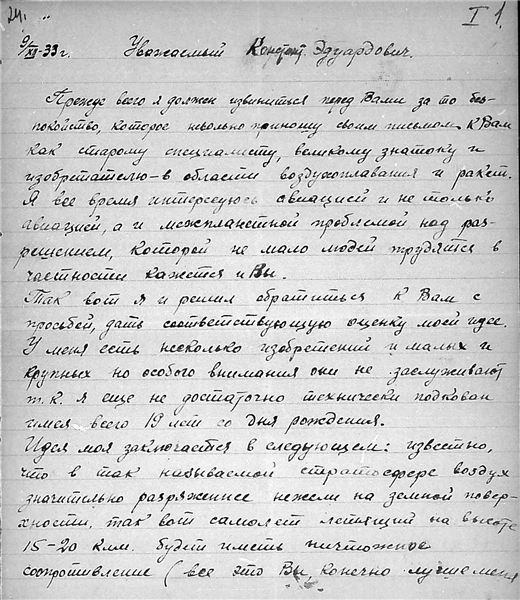 24.
I 1.
9/XI-33 г. Уважаемый Констант. Эдуардович.
Прежде всего я должен извиниться перед Вами за то бес-
покойство, которое невольно приношу своим письмом к Вам
как старому специалисту, великому знатоку и
изобретателю-в области воздухоплавания и ракет.
Я все время интересуюсь авиацией и не только
авиацией, а и межпланетной проблемой, над раз-
решением, которой не мало людей трудятся в
частности кажется и Вы.
Так вот я и решил обратиться к Вам с
просьбой, дать соответствующую оценку моей идее.
У меня есть несколько изобретений и малых и
крупных но особого внимания они не заслуживают
т.к. я еще не достаточно технически подкован
имея всего 19 лет со дня рождения.
Идея моя заключается в следующем: известно,
что в так называемой стратосфере воздух
значительно разряженнее нежели на земной повер-
хности, так вот самолет летящий на высоте
15-20 клм. будет иметь ничтожное
сопротивление (все это Вы, конечно лучше меня